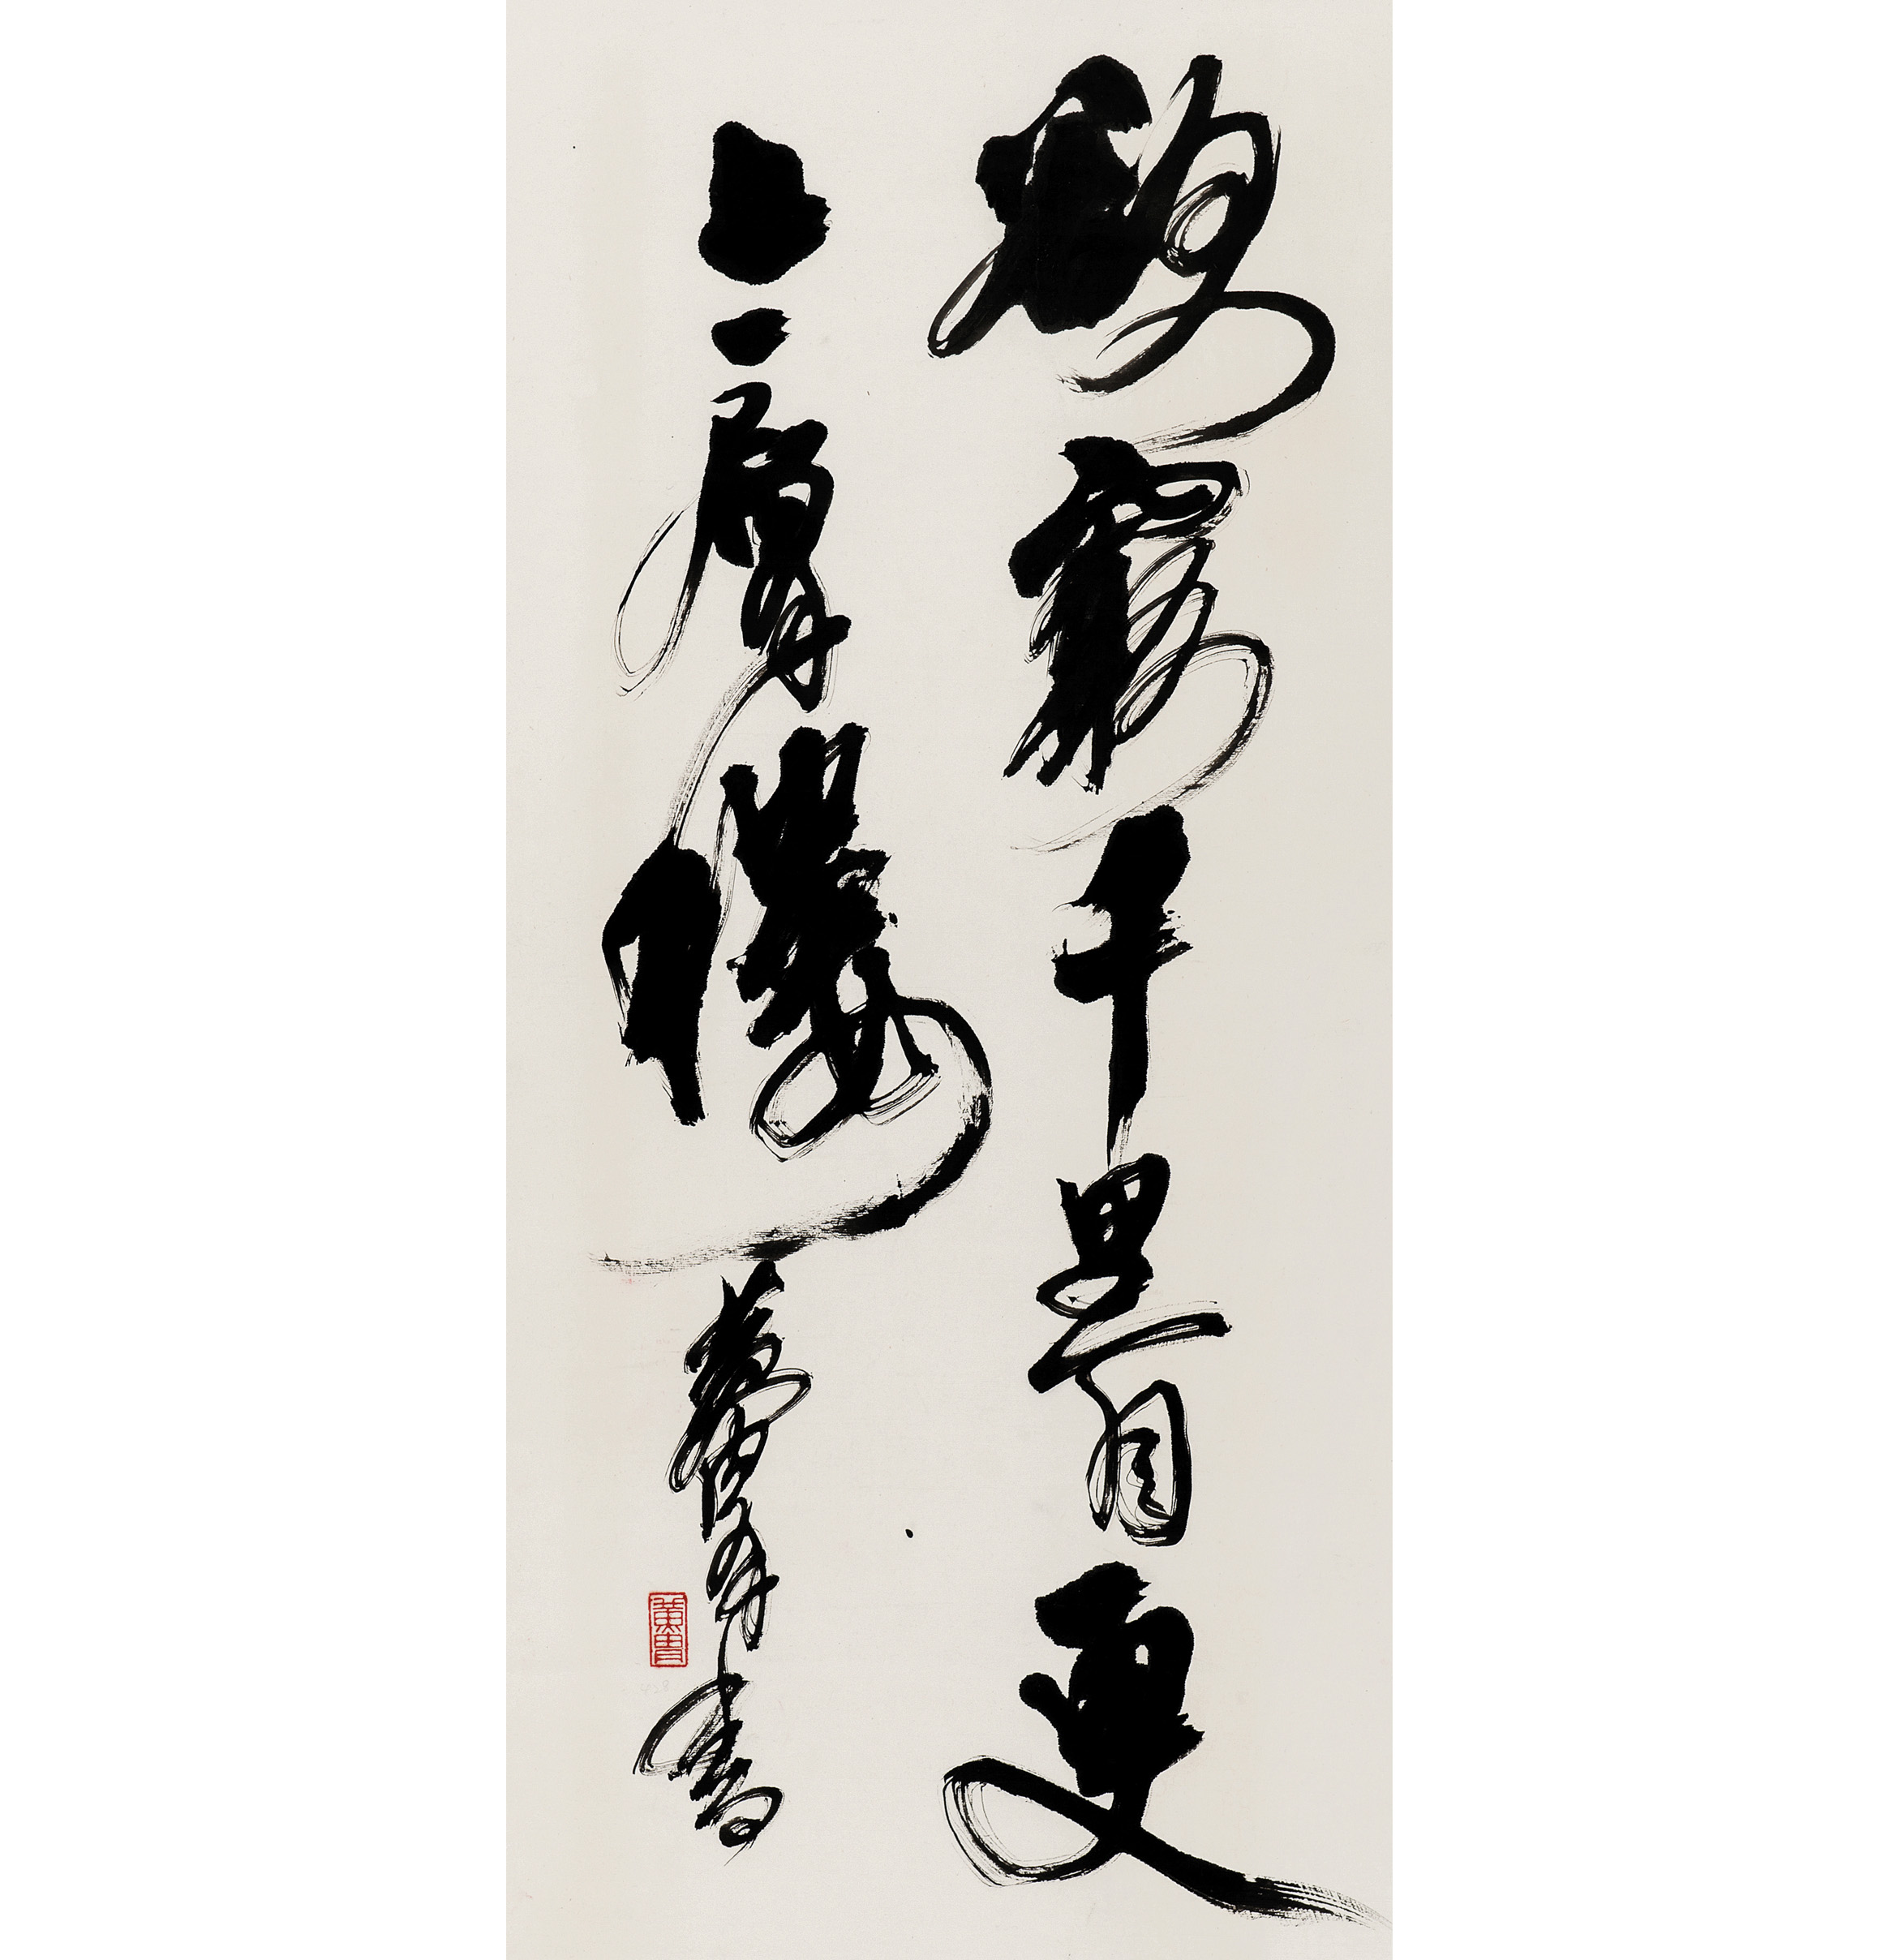 欲窮千里目更
上一層樓 黃君書